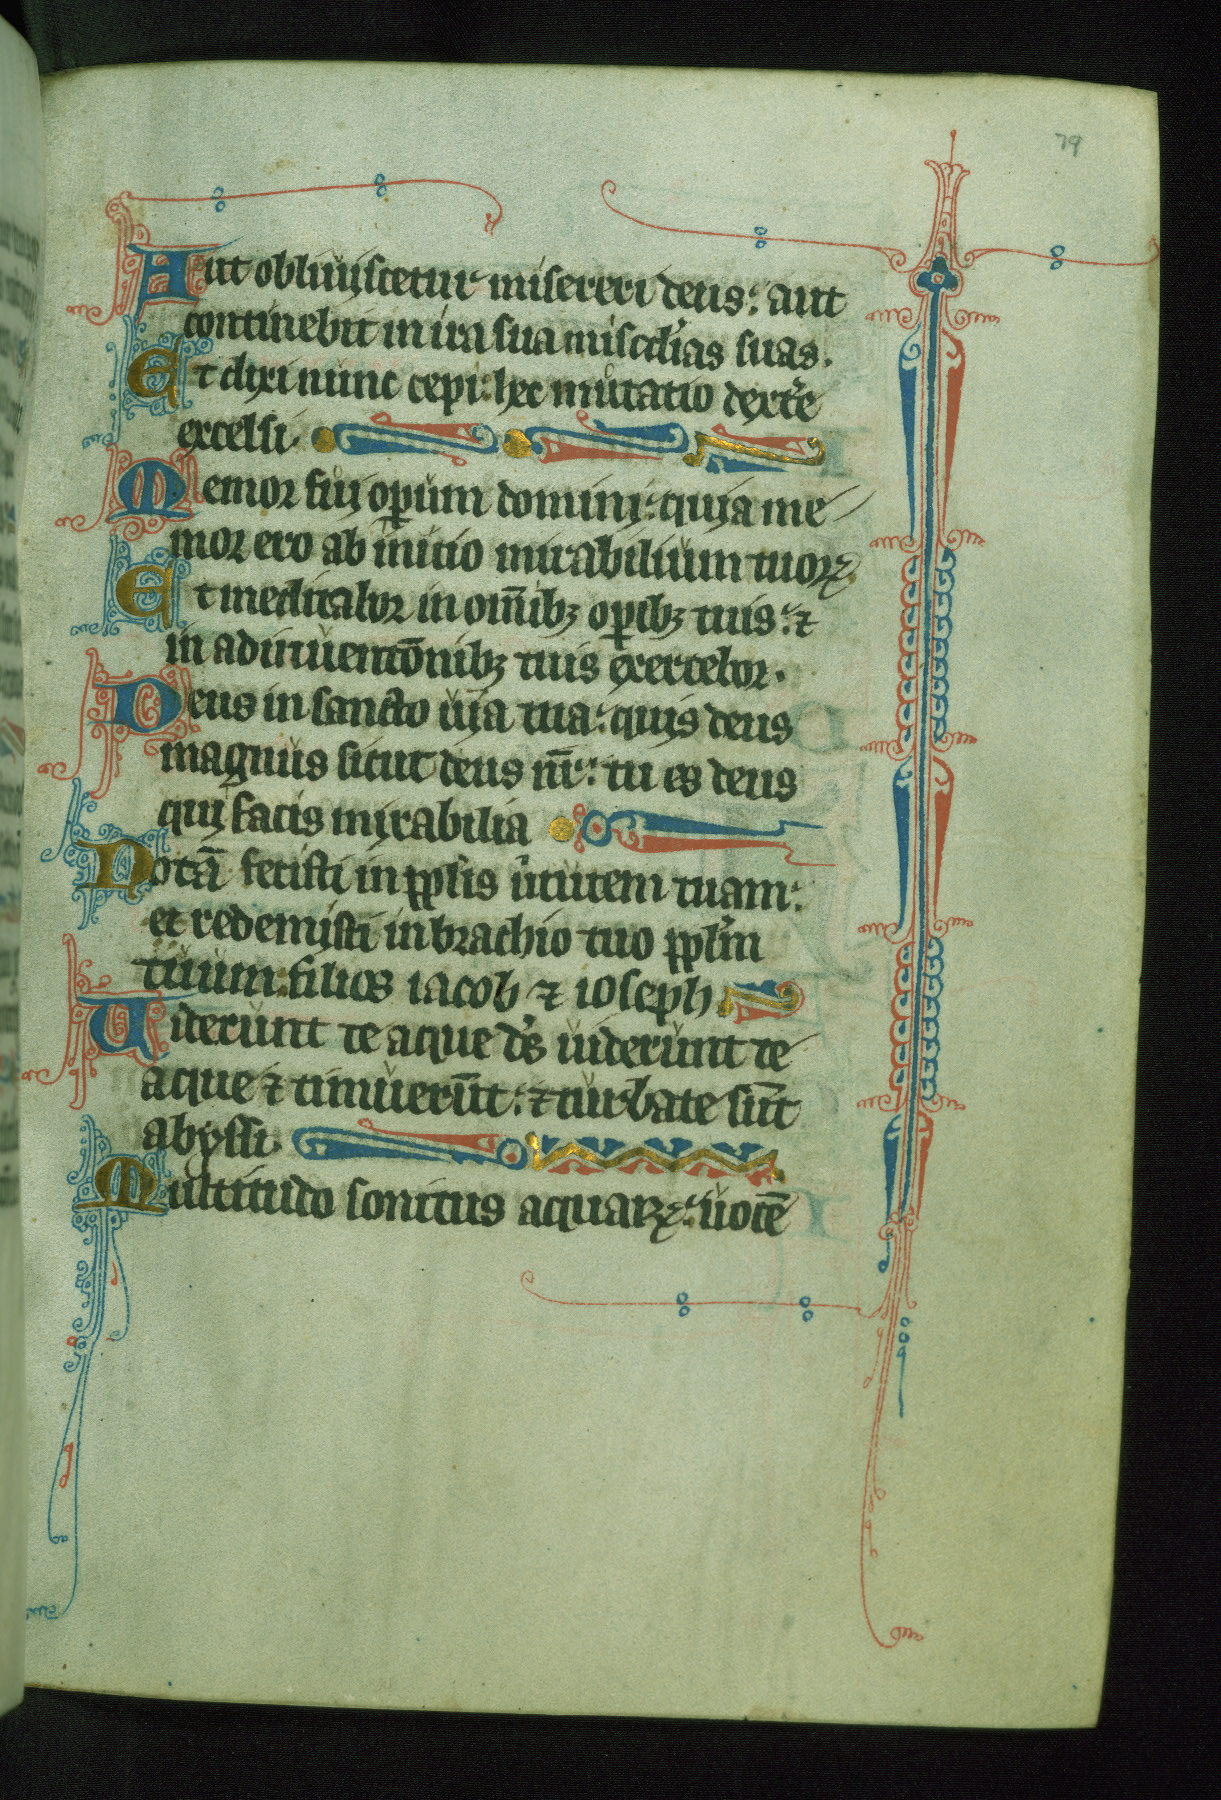 79
Aut obliuiscetur misereri deus: aut
continebit in ira sua miscdias suas.
Et dixi nunc cepi: hec mutatio dextre
excelsi.
Memor fui opum domini: quia me
mor ero ab inicio mirabilium tuorꝝ
Et meditabor in omībꝫ opibꝫ tuis: ⁊
in adinuentōnibꝫ tuis exercebor.
Deus in sancto uia tua: quis deus
magnus sicut deus nr̄: tu es deus
qui facis mirabilia
Notā fecisti in pplis uirtutem tuam:
et redemisti in brachio tuo pplm
tuum: filios iacob ⁊ ioseph.
Uiderunt te aque ds uiderunt te
aque ⁊ timuerūt: ⁊ turbate sūt
abyssi.
Multitudo sonitus aquarꝝ: uocē